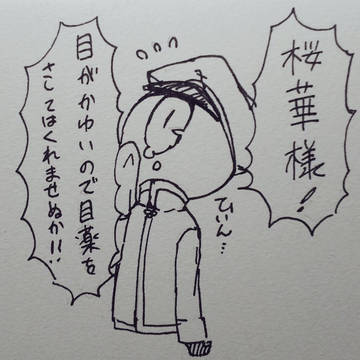 桜華様!
目がかゆいので目薬を
さしてはくれませぬか!!
ひいん…